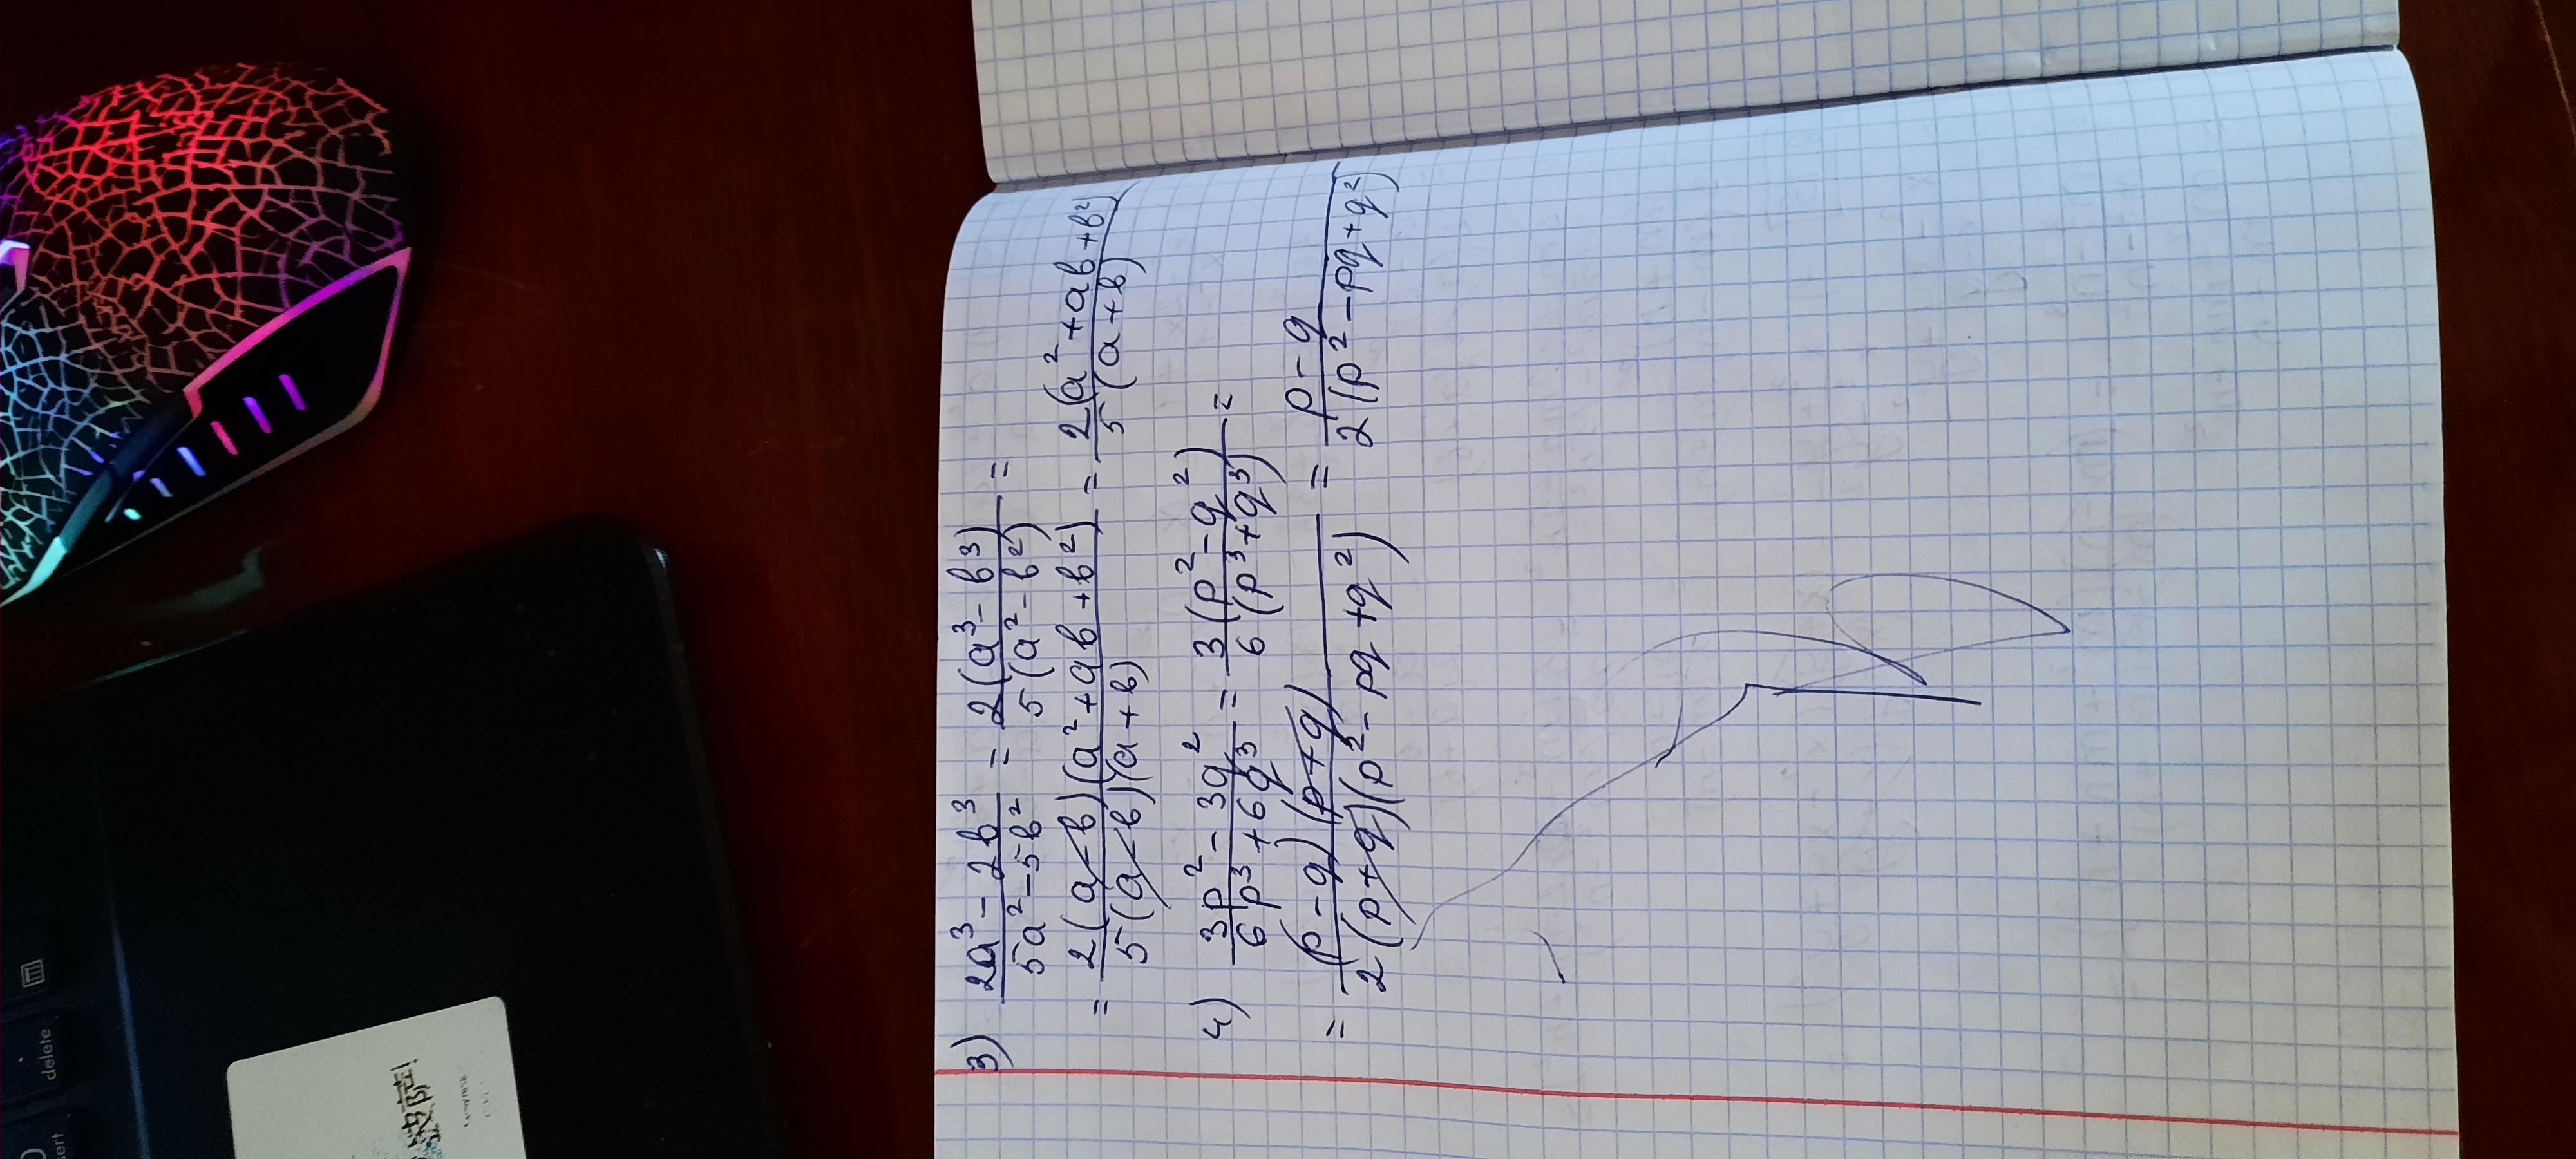 3) (2a³ - 2b³)/(5a² - 5b²) = 2(a³ - b³)/5(a² - b²) =
= 2(a - b)(a² + ab + b²)/5(a - b)(a + b) = 2(a² + ab + b²)/5(a + b)
4) (3p² - 3q²)/(6p³ + 6q³) = 3(p² - q²)/6(p³ + q³) =
= (p - q)(p + q)/2(p + q)(p² - pq + q²) = (p - q)/2(p² - pq + q²)
delete